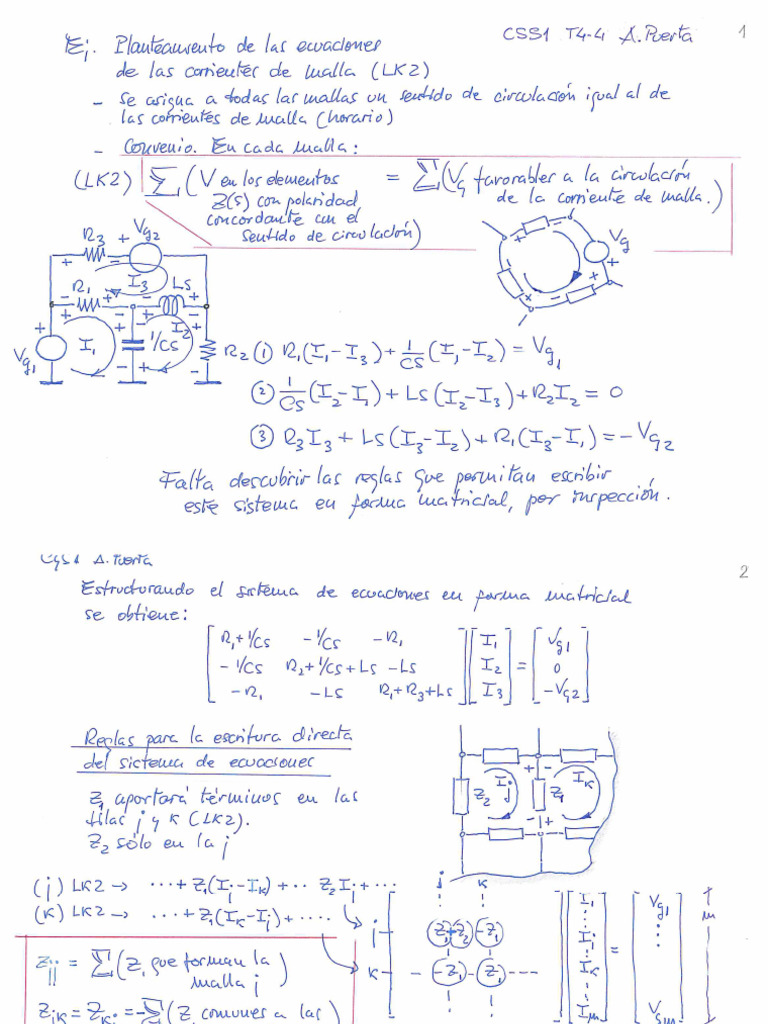 CSS1 T4-4 A. Puerta 1
Ej. Planteamiento de las ecuaciones
de las corrientes de malla (LK2)
- Se asigna a todas las mallas un sentido de circulación igual al de
las corrientes de malla (horario)
- Convenio. En cada malla:
(LK2) ∑(V en los elementos = ∑(Vg favorables a la circulación
Z(s) con polaridad de la corriente de malla.)
concordante con el
sentido de circulación)
R3 + Vg2 -
+ -
I3
R1 Ls
I1 1/Cs I2
Vg1 R2
Vg
① R1(I1-I3)+1/Cs(I1-I2)=Vg1
② 1/Cs(I2-I1)+Ls(I2-I3)+R2I2=0
③ R3I3+Ls(I3-I2)+R1(I3-I1)=-Vg2
Falta descubrir las reglas que permitan escribir
este sistema en forma matricial, por inspección.
A. Puerta 2
Estructurando el sistema de ecuaciones en forma matricial
se obtiene:
R1+1/Cs -1/Cs -R1 I1 Vg1
-1/Cs R2+1/Cs+Ls -Ls I2 = 0
-R1 -Ls R1+R3+Ls I3 -Vg2
Reglas para la escritura directa
del sistema de ecuaciones
Z1 aportará términos en las
filas j y k (LK2).
Z2 sólo en la j
Z2 Ij Z1 Ik
(j) LK2 → ···+Z1(Ij-Ik)+·· Z2Ij+···
(k) LK2 → ···+Z1(Ik-Ij)+····
j k
j Z1+Z2 -Z1
k - -Z1 - Z1 ---
I1
Ij
Ik
Im
=
Vg1
Vgm
m
Zjj = ∑(Zi que forman la
malla j)
Zjk=Zkj=-∑(Z comunes a las)